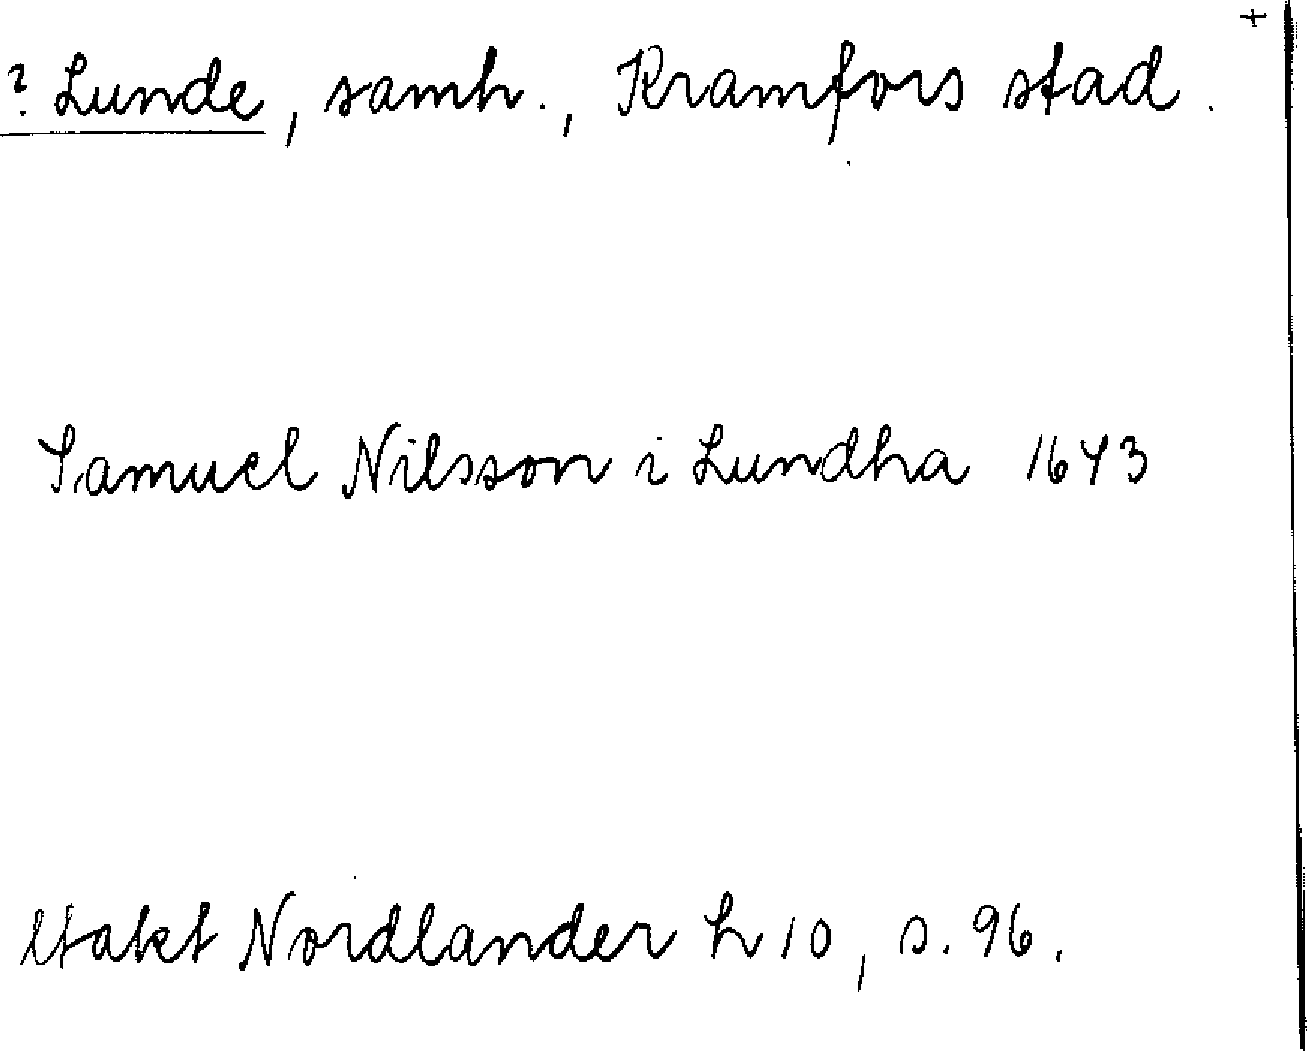 +
? Lunde, samh., Kramfors stad.
Samuel Nilsson i Lundha 1643
Utakt Nordlander h 10, s. 96.